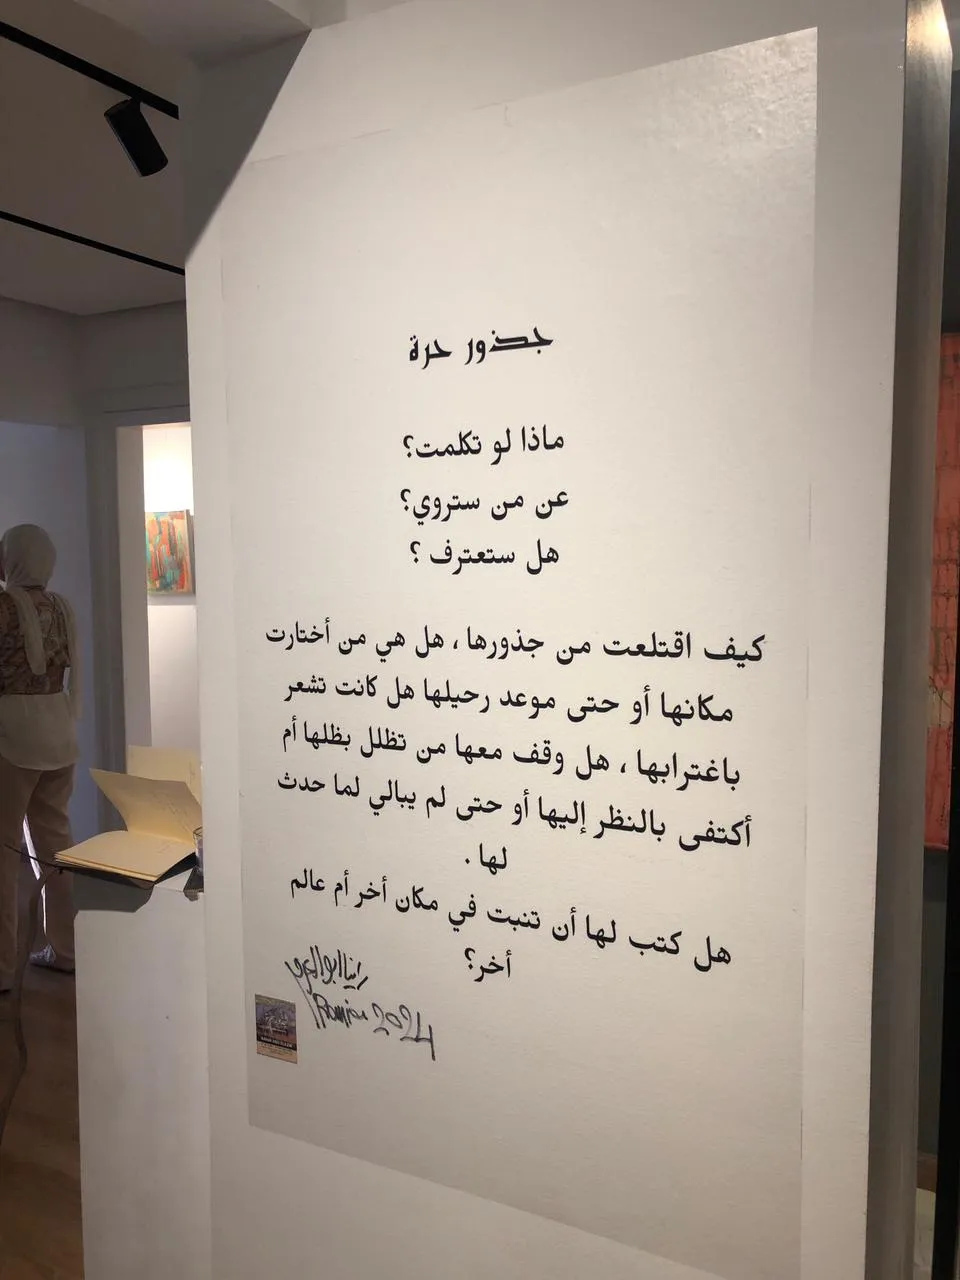 جذور حرة
ماذا لو تكلمت؟
عن من ستروي؟
هل ستعترف ؟
كيف اقتلعت من جذورها ، هل هي من أختارت
مكانها أو حتى موعد رحيلها هل كانت تشعر
باغترابها ، هل وقف معها من تظلل بظلها أم
أكتفى بالنظر إليها أو حتى لم يبالي لما حدث
لها .
هل كتب لها أن تنبت في مكان أخر أم عالم
أخر؟
رانيا ابو العزم
Rania 2024